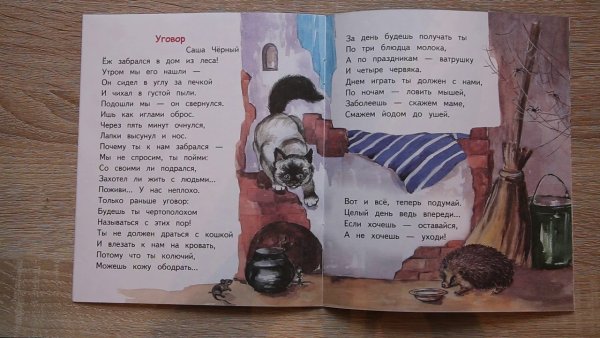 Уговор
Саша Чёрный
Ёж забрался в дом из леса!
Утром мы его нашли —
Он сидел в углу за печкой
И чихал в густой пыли.
Подошли мы — он свернулся.
Ишь как иглами оброс.
Через пять минут очнулся,
Лапки высунул и нос.
Почему ты к нам забрался —
Мы не спросим, ты пойми:
Со своими ли подрался,
Захотел ли жить с людьми...
Поживи... У нас неплохо.
Только раньше уговор:
Будешь ты чертополохом
Называться с этих пор!
Ты не должен драться с кошкой
И влезать к нам на кровать,
Потому что ты колючий,
Можешь кожу ободрать...
За день будешь получать ты
По три блюдца молока,
А по праздникам — ватрушку
И четыре червяка.
Днем играть ты должен с нами,
По ночам — ловить мышей,
Заболеешь — скажем маме,
Смажем йодом до ушей.
Вот и всё, теперь подумай.
Целый день ведь впереди...
Если хочешь — оставайся,
А не хочешь — уходи!